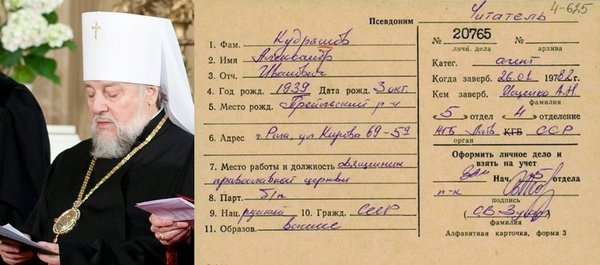 Псевдоним Читатель 4-625
1. Фам. Кудряшов
2. Имя Александр
3. Отч. Иванович
4. Год рожд. 1939 Дата рожд. 3 окт.
5. Место рожд. Прейльский р-н
6. Адрес г. Рига, ул Кирова 69-59
7. Место работы и должность священник
православной церкви
8. Парт. б/п
9. Нац. русский 10. Гражд. СССР
11. Образов. высшее
№ 20765 №
личн. дела архива
Катег. агент
Когда заверб. 26.01 1982 г.
Кем заверб.
фамилия
«5» отдел «4» отделение
КГБ ССР
орган
Оформить личное дело и
взять на учет
Нач. 5 отдела
п-к
подпись
фамилия
Алфавитная карточка, форма 3